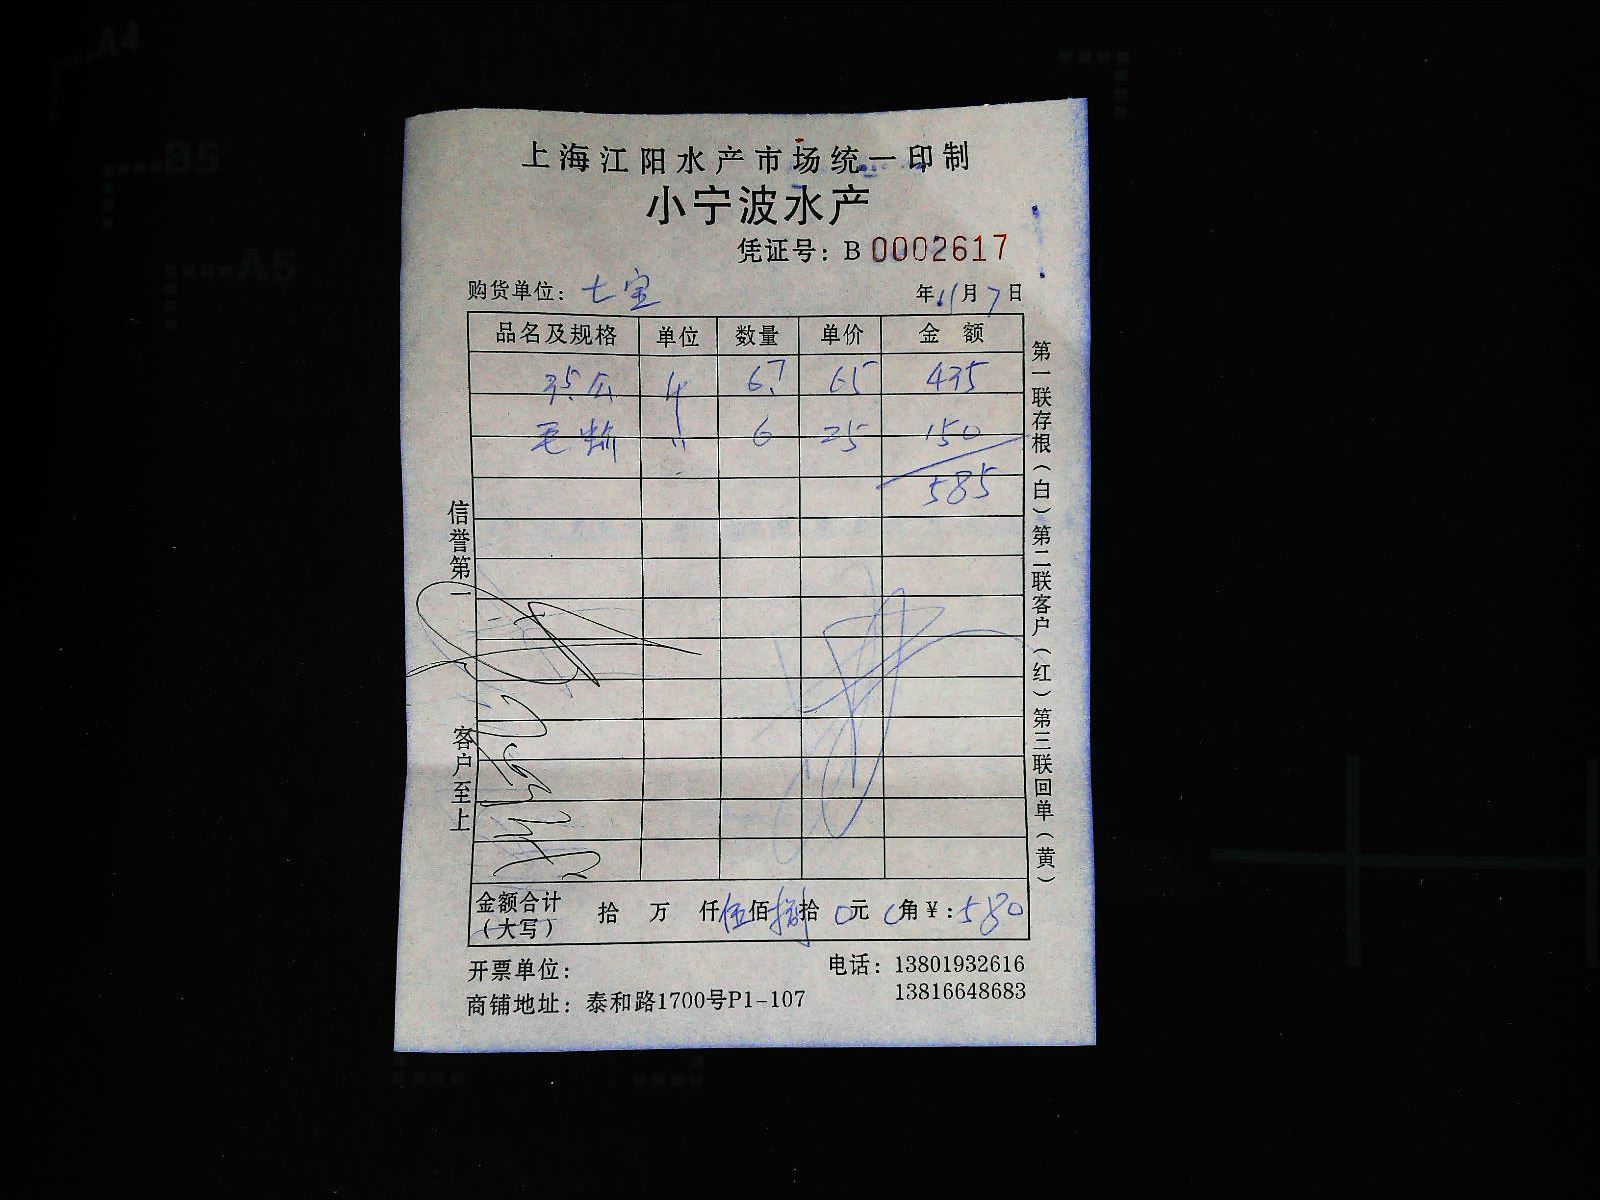 上海江阳水产市场统一印制
小宁波水产
凭证号：B 0002617
购货单位：七宝 年11月7日
品名及规格 单位 数量 单价 金额
6.7 65 435
毛 〃 6 25 150
585
信誉第一
客户至上
第一联存根（白）第二联客户（红）第三联回单（黄）
金额合计（大写） 拾 万 仟伍佰捌拾0元0角￥:580
开票单位： 电话：13801932616
商铺地址：泰和路1700号P1-107 13816648683
A4
B5
A5